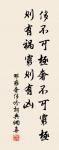 侈不可極奢不可窮極
則有禍窮則有凶
邵雍奢侈吟